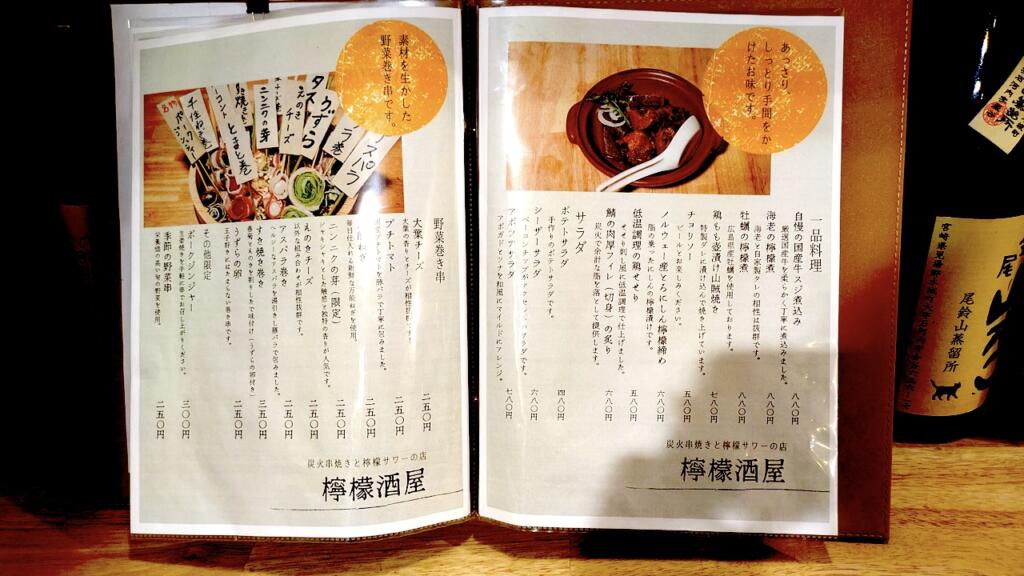 あっさり、
しっとり手間をか
けたお味です。
一品料理
自慢の国産牛スジ煮込み
厳選国産牛を柔らかく丁寧に煮込みました。
八八〇円
海老の檸檬煮
海老と自家製タレの相性は抜群です。
八八〇円
牡蠣の檸檬煮
広島県産牡蠣を使用しております。
八八〇円
鶏もも壺漬け山賊焼き
特製ダレに漬け込んで焼き上げています。
七八〇円
チョリソー
ビールとお楽しみください。
五八〇円
ノルウェー産とろにしん檸檬締め
脂の乗ったにしんの檸檬漬けです。
六八〇円
低温調理の鶏せせり
せせり刺し風に低温調理で仕上げました。
五八〇円
鯖の肉厚フィレ（切身）の炙り
炭火で余計な脂を落として提供します。
六八〇円
サラダ
ポテトサラダ
手作りのポテトサラダです。
四八〇円
シーザーサラダ
六八〇円
七八〇円
炭火串焼きと檸檬サワーの店
檸檬酒屋
素材を生かした
野菜巻き串です。
アスパラ
うずら
えのきチーズ
ニンニクの芽
とまと巻
野菜巻き串
大葉チーズ
大葉の香りとチーズが相性抜群です。
二五〇円
プチトマト
二五〇円
二五〇円
ニンニクの芽（限定）
二五〇円
えのきチーズ
以外な組み合わせが相性抜群です。
二五〇円
アスパラ巻き
二五〇円
すき焼き巻き
三五〇円
うずらの卵
二五〇円
その他限定
ポークジンジャー
生姜焼きを手軽に串でお召し上がりください。
三〇〇円
季節の野菜串
栄養価の高い旬の野菜を使用。
二五〇円
炭火串焼きと檸檬サワーの店
檸檬酒屋
尾鈴山蒸留所